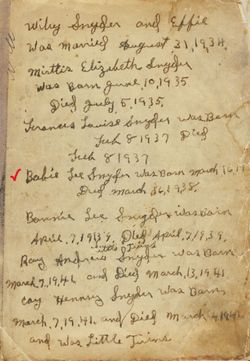 Wiley Snyder and Effie
Was Married August 31, 1934.
Elizabeth Snyder
Was Born June, 10, 1935
Died July 5, 1935.
Louise Snyder was Born
Feb 8 1937 Died
Feb 8 1937
Babie Lee Snyder was Born March 16, 19
Died March 16, 1938.
Bonnie Lee Snyder was Born
April, 7, 1939, Died April, 7, 1939,
little Twins
Ray Andrew Snyder was Born
March, 7, 1941, and Died March, 13, 1941
Snyder was Born
March, 7, 1941, and Died March 1941
and was Little Twins